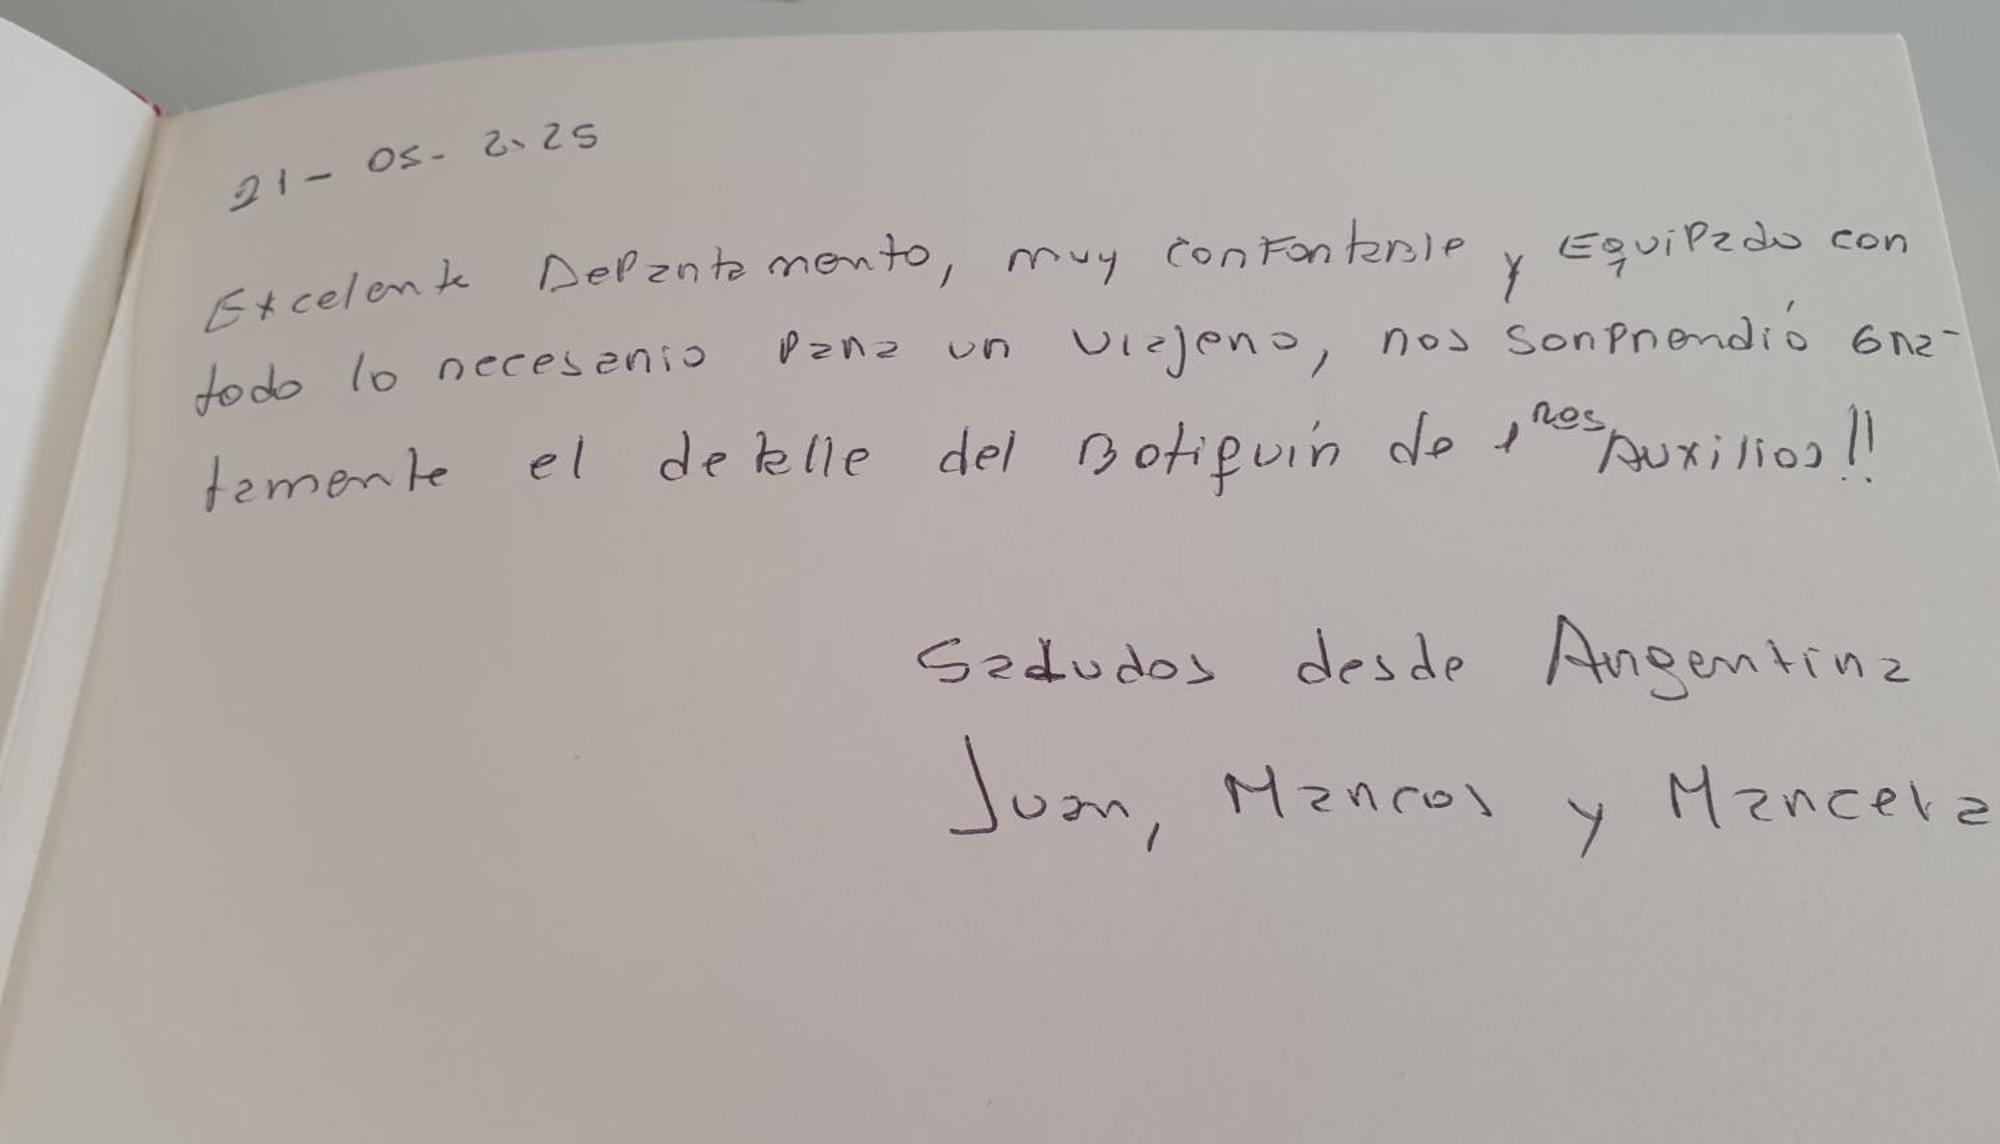 21-05-2025
Excelente Departamento, muy confortable y Equipado con
todo lo necesario para un viajero, nos sorprendió gra-
tamente el detalle del Botiquín de 1ros Auxilios!!
Saludos desde Argentina
Juan, Marcos y Marcela